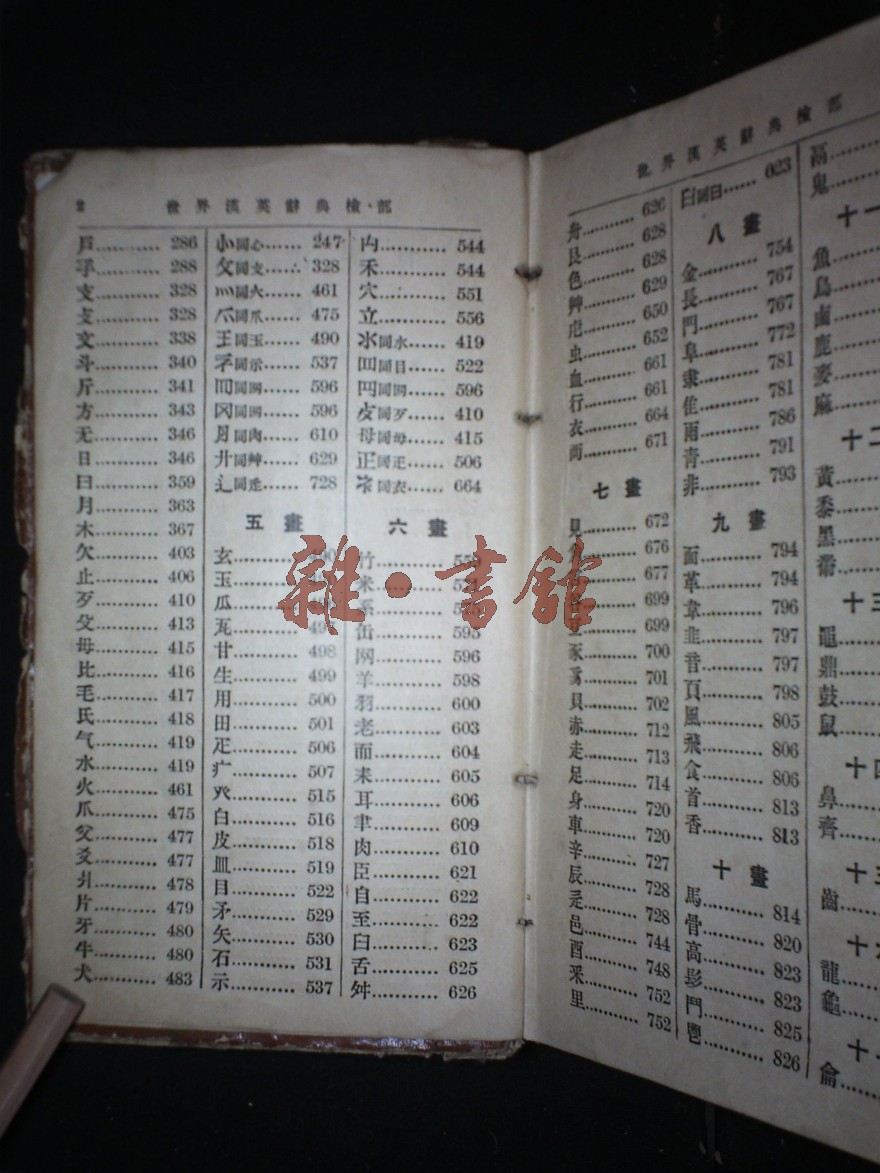 2 世界漢英辭典檢部
戶.......... 286
手.......... 288
支.......... 328
攴.......... 328
文.......... 338
斗.......... 340
斤.......... 341
方.......... 343
无.......... 346
日.......... 346
曰.......... 359
月.......... 363
木.......... 367
欠.......... 403
止.......... 406
歹.......... 410
殳.......... 413
毋.......... 415
比.......... 416
毛.......... 417
氏.......... 418
气.......... 419
水.......... 419
火.......... 461
爪.......... 475
父.......... 477
爻.......... 477
爿.......... 478
片.......... 479
牙.......... 480
牛.......... 480
犬.......... 483
㣺同心...... 247
攵同攴...... 328
灬同火...... 461
爫同爪...... 475
王同玉...... 490
礻同示...... 537
罒同网...... 596
冈同网...... 596
月同肉...... 610
艹同艸...... 629
辶同辵...... 728
五畫
玄..........
玉..........
瓜..........
瓦..........
甘.......... 498
生.......... 499
用.......... 500
田.......... 501
疋.......... 506
疒.......... 507
癶.......... 515
白.......... 516
皮.......... 518
皿.......... 519
目.......... 522
矛.......... 529
矢.......... 530
石.......... 531
示.......... 537
禸.......... 544
禾.......... 544
穴.......... 551
立.......... 556
氺同水...... 419
罒同目...... 522
同网...... 596
歺同歹...... 410
母同毋...... 415
正同疋...... 506
衤同衣...... 664
六畫
竹..........
米..........
糸..........
缶.......... 595
网.......... 596
羊.......... 598
羽.......... 600
老.......... 603
而.......... 604
耒.......... 605
耳.......... 606
聿.......... 609
肉.......... 610
臣.......... 621
自.......... 622
至.......... 622
臼.......... 623
舌.......... 625
舛.......... 626
雜·書館
世界漢英辭典檢部
舟.......... 626
艮.......... 628
色.......... 628
艸.......... 629
虍.......... 650
虫.......... 652
血.......... 661
行.......... 661
衣.......... 664
襾.......... 671
七畫
見.......... 672
角.......... 676
677
699
699
豕.......... 700
豸.......... 701
貝.......... 702
赤.......... 712
走.......... 713
足.......... 714
身.......... 720
車.......... 720
辛.......... 727
辰.......... 728
辵.......... 728
邑.......... 744
酉.......... 748
釆.......... 752
里.......... 752
臼同臼...... 623
八畫
金.......... 754
長.......... 767
門.......... 767
阜.......... 772
隶.......... 781
隹.......... 781
雨.......... 786
青.......... 791
非.......... 793
九畫
面.......... 794
革.......... 794
韋.......... 796
韭.......... 797
音.......... 797
頁.......... 798
風.......... 805
飛.......... 806
食.......... 806
首.......... 813
香.......... 813
十畫
馬.......... 814
骨.......... 820
高.......... 823
髟.......... 823
鬥.......... 825
鬯.......... 826
鬲
鬼
十一
魚
鳥
鹵
鹿
麥
麻
十二
黃
黍
黑
黹
十三
黽
鼎
鼓
鼠
十四
鼻
齊
十五
齒
十六
龍
龜
十
龠